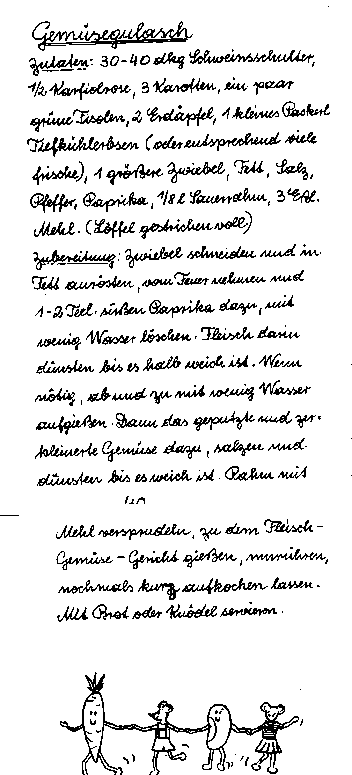 Gemüsegulasch
Zutaten: 30-40 dkg Schweinsschulter,
1/2 Karfiolrose, 3 Karotten, ein paar
grüne Fisolen, 2 Erdäpfel, 1 kleines Packerl
Tiefkühlerbsen (oder entsprechend viele
frische), 1 größere Zwiebel, Fett, Salz,
Pfeffer, Paprika, 1/8 l Sauerrahm, 3 Eßl.
Mehl. (Löffel gestrichen voll)
Zubereitung: Zwiebel schneiden und in
Fett anrösten, vom Feuer nehmen und
1-2 Teel. süßen Paprika dazu, mit
wenig Wasser löschen. Fleisch darin
dünsten bis es halb weich ist. Wenn
nötig, ab und zu mit wenig Wasser
aufgießen. Dann das geputzte und zer-
kleinerte Gemüse dazu, salzen und
dünsten bis es weich ist. Rahm mit
Mehl versprudeln, zu dem Fleisch-
Gemüse-Gericht gießen, umrühren,
nochmals kurz aufkochen lassen.
Mit Brot oder Knödel servieren.